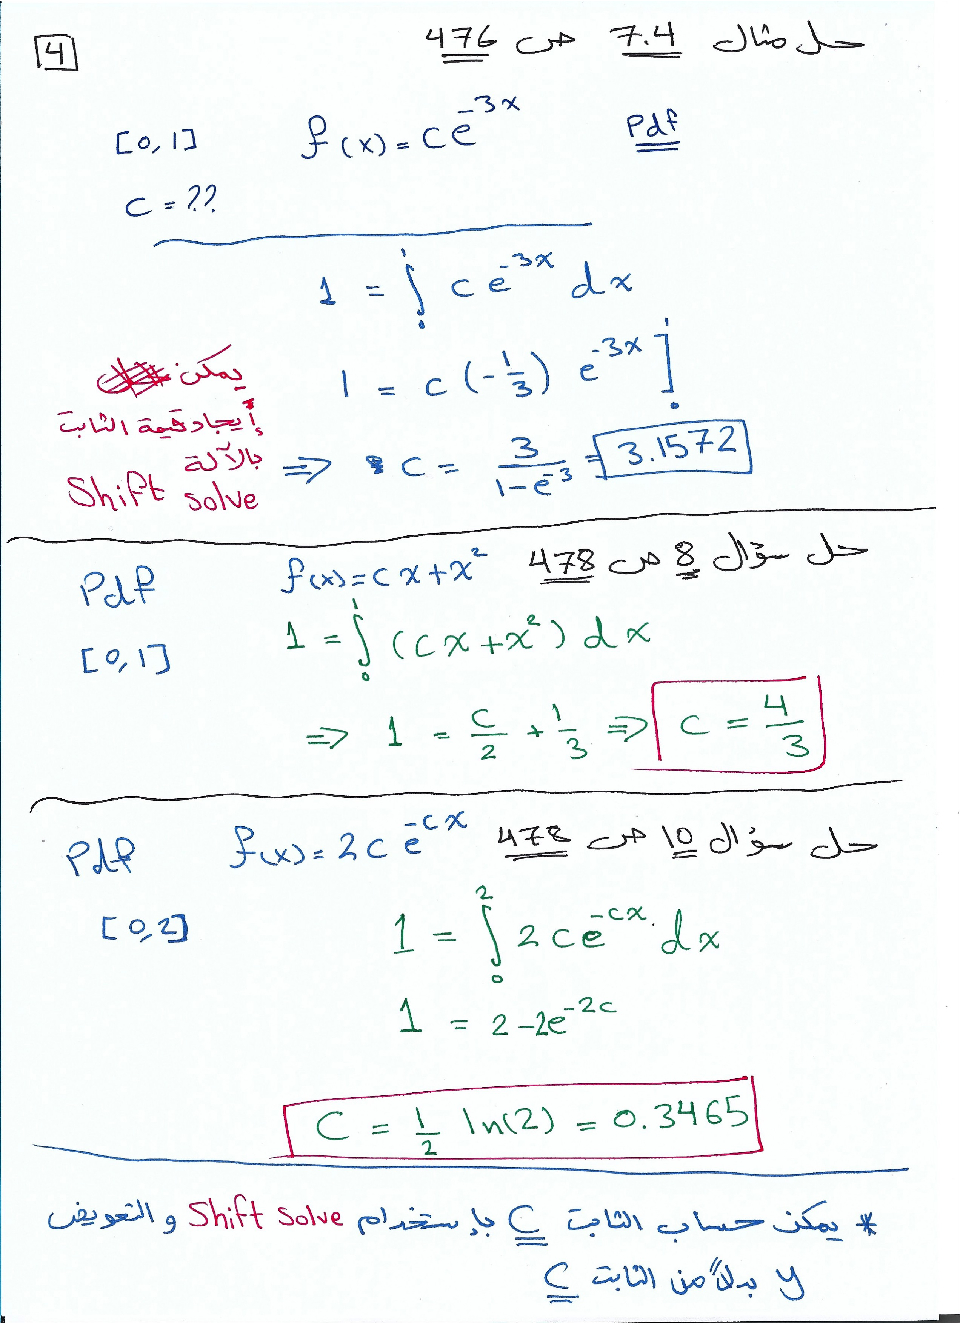 4
حل مثال 7.4 ص 476
[0,1] f(x) = ce^{-3x} Pdf
c = ??
1 = ∫_0^1 c e^{-3x} dx
1 = c (-1/3) e^{-3x} ]_0^1
يمكن
إيجاد قيمة الثابت
بالآلة
Shift solve
⇒ c = 3/(1-e^{-3}) = 3.1572
حل سؤال 8 ص 478
Pdf f(x) = cx + x^2
[0,1] 1 = ∫_0^1 (cx + x^2) dx
⇒ 1 = c/2 + 1/3 ⇒ c = 4/3
حل سؤال 10 ص 478
Pdf f(x) = 2c e^{-cx}
[0,2] 1 = ∫_0^2 2ce^{-cx} . dx
1 = 2-2e^{-2c}
C = 1/2 ln(2) = 0.3465
* يمكن حساب الثابت C بإستخدام Shift Solve و التعويض
y بدلاً من الثابت C